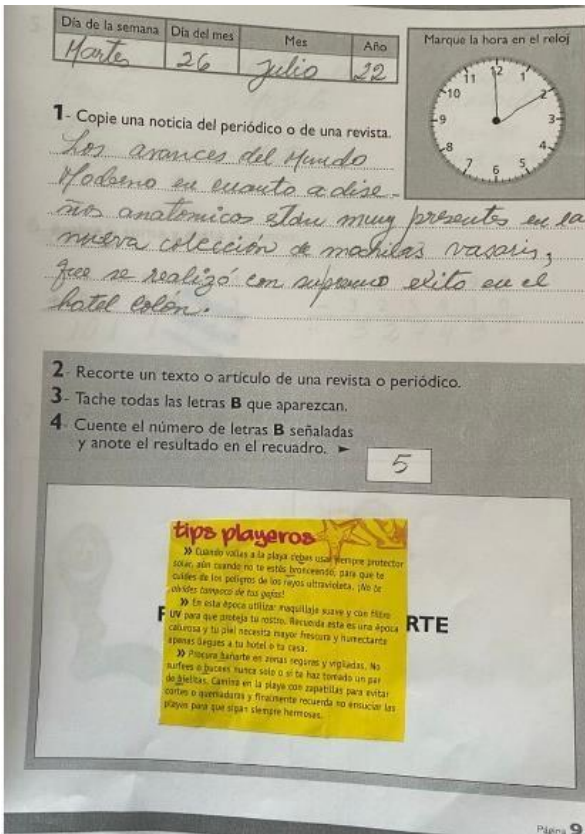 Día de la semana Día del mes Mes Año
Martes 26 Julio 22
Marque la hora en el reloj
12
11 1
10 2
9 3
8 4
7 5
6
1- Copie una noticia del periódico o de una revista.
Los avances del Mundo
Moderno en cuanto a dise-
ños anatomicos están muy presentes en la
nueva colección de mochilas vasaris,
que se realizó con supremo exito en el
hotel Colón.
2- Recorte un texto o artículo de una revista o periódico.
3- Tache todas las letras B que aparezcan.
4- Cuente el número de letras B señaladas
y anote el resultado en el recuadro.
5
tips playeros
» Cuando vallas a la playa debes usar siempre protector
solar, aún cuando no te estés bronceando, para que te
cuides de los peligros de los rayos ultravioleta. ¡No te
olvides tampoco de tus gafas!
» En esta época utilizar maquillaje suave y con filtro
UV para que proteja tu rostro. Recuerda esta es una época
calurosa y tu piel necesita mayor frescura y humectante
apenas llegues a tu hotel o tu casa.
» Procura bañarte en zonas seguras y vigiladas. No
surfees o bucees nunca solo o si te haz tomado un par
de bielitas. Camina en la playa con zapatillas para evitar
cortes o quemaduras y finalmente recuerda no ensuciar las
playas para que sigan siempre hermosas.
RTE
Página 9